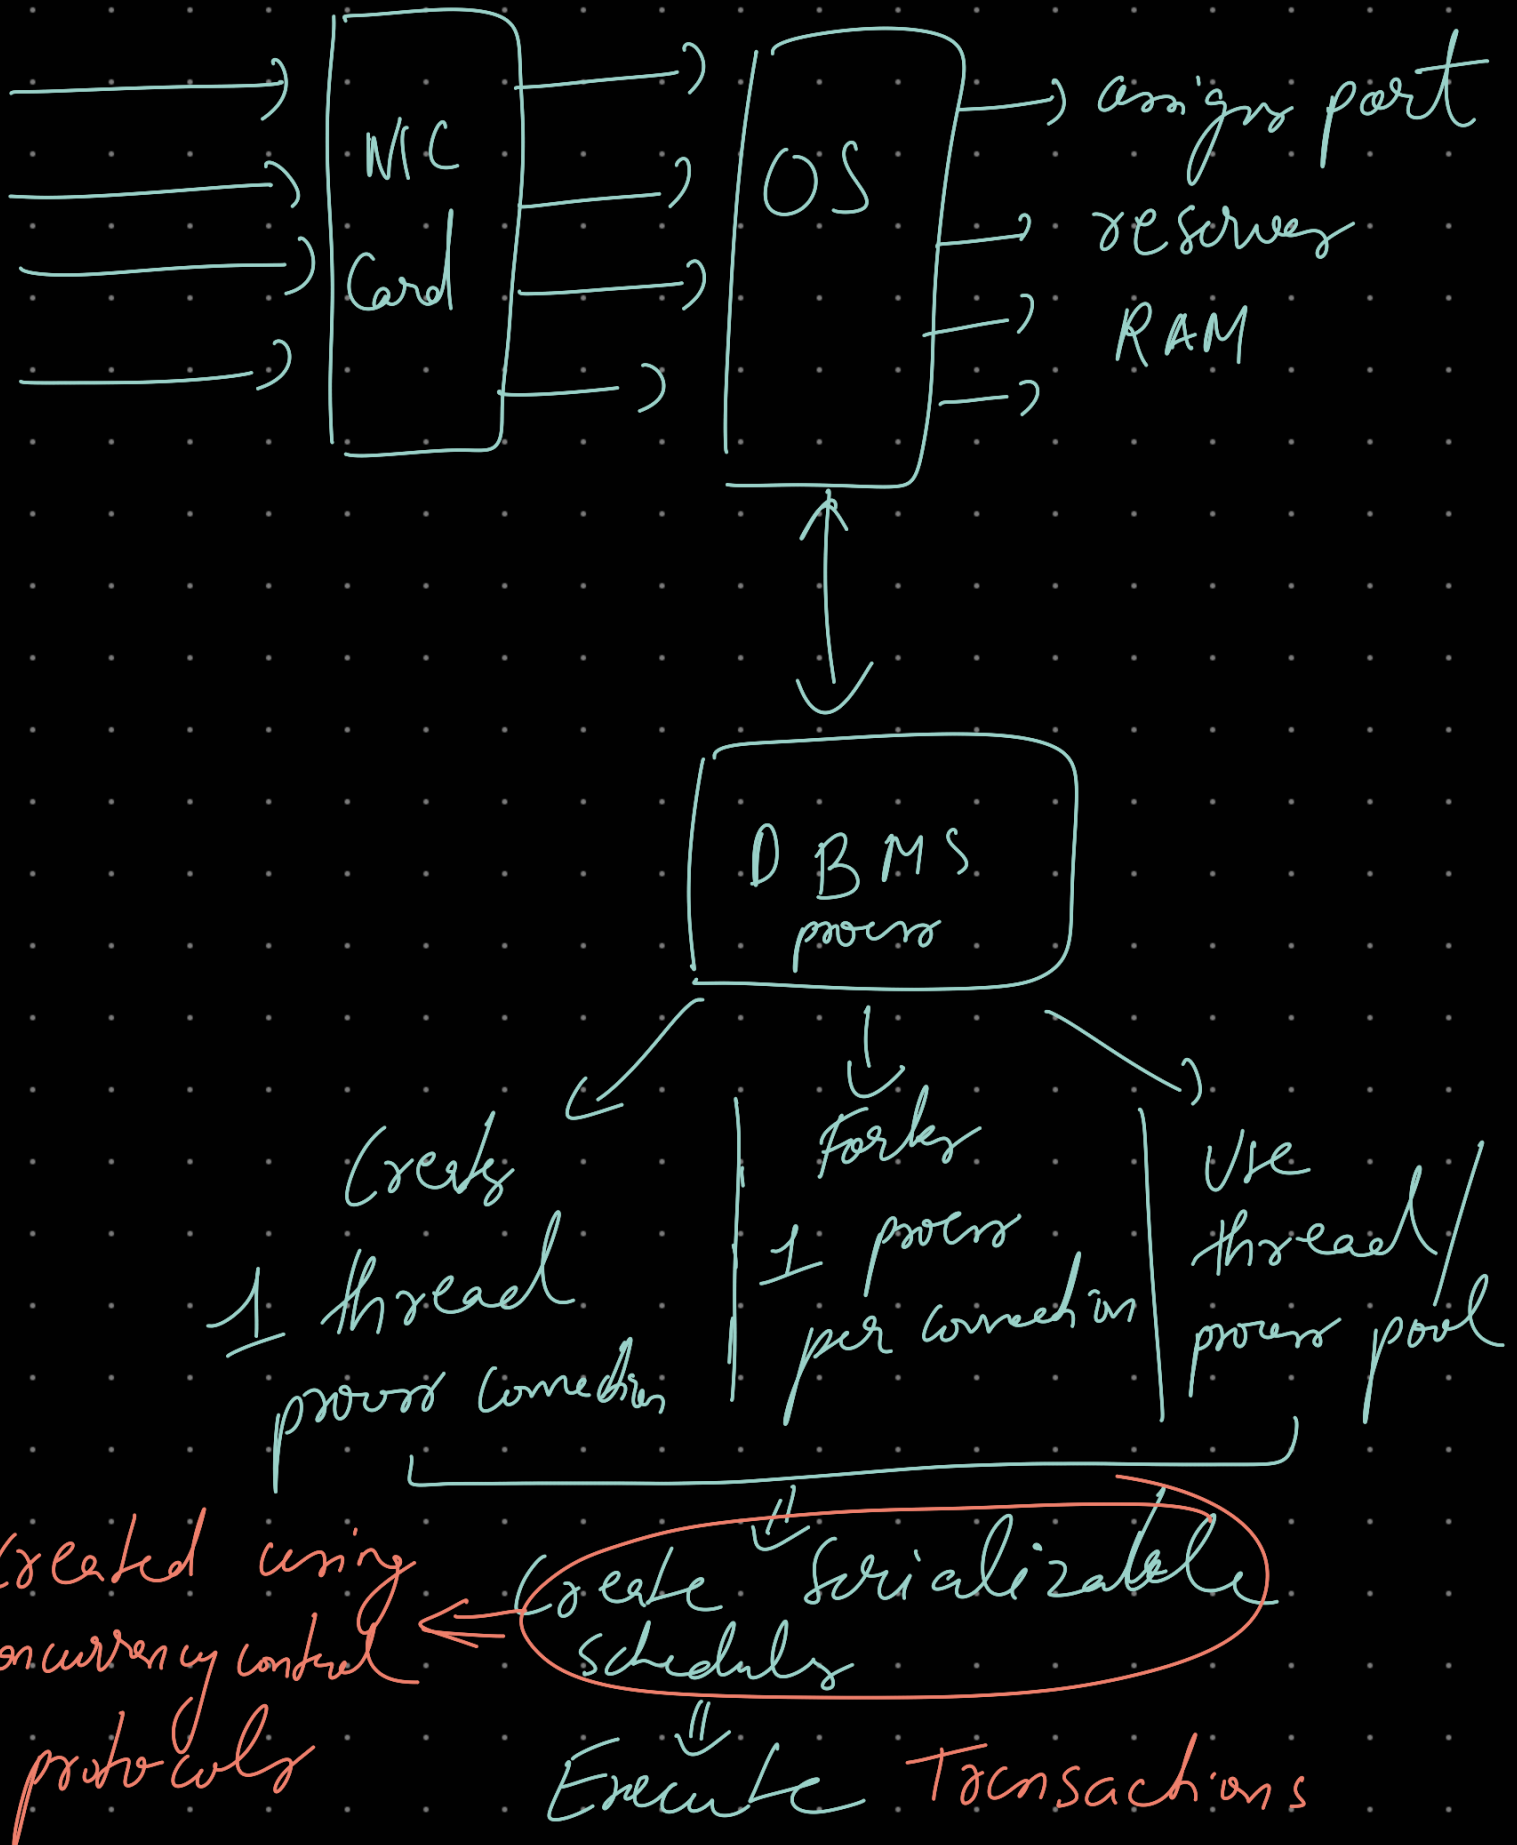 NIC
Card
OS
assigns port
reserves
RAM
DBMS
process
Creates
1 thread
process connection
Forks
1 process
per connection
Use
thread/
process pool
Create Serializable
schedules
created using
concurrency control
protocols
Execute Transactions